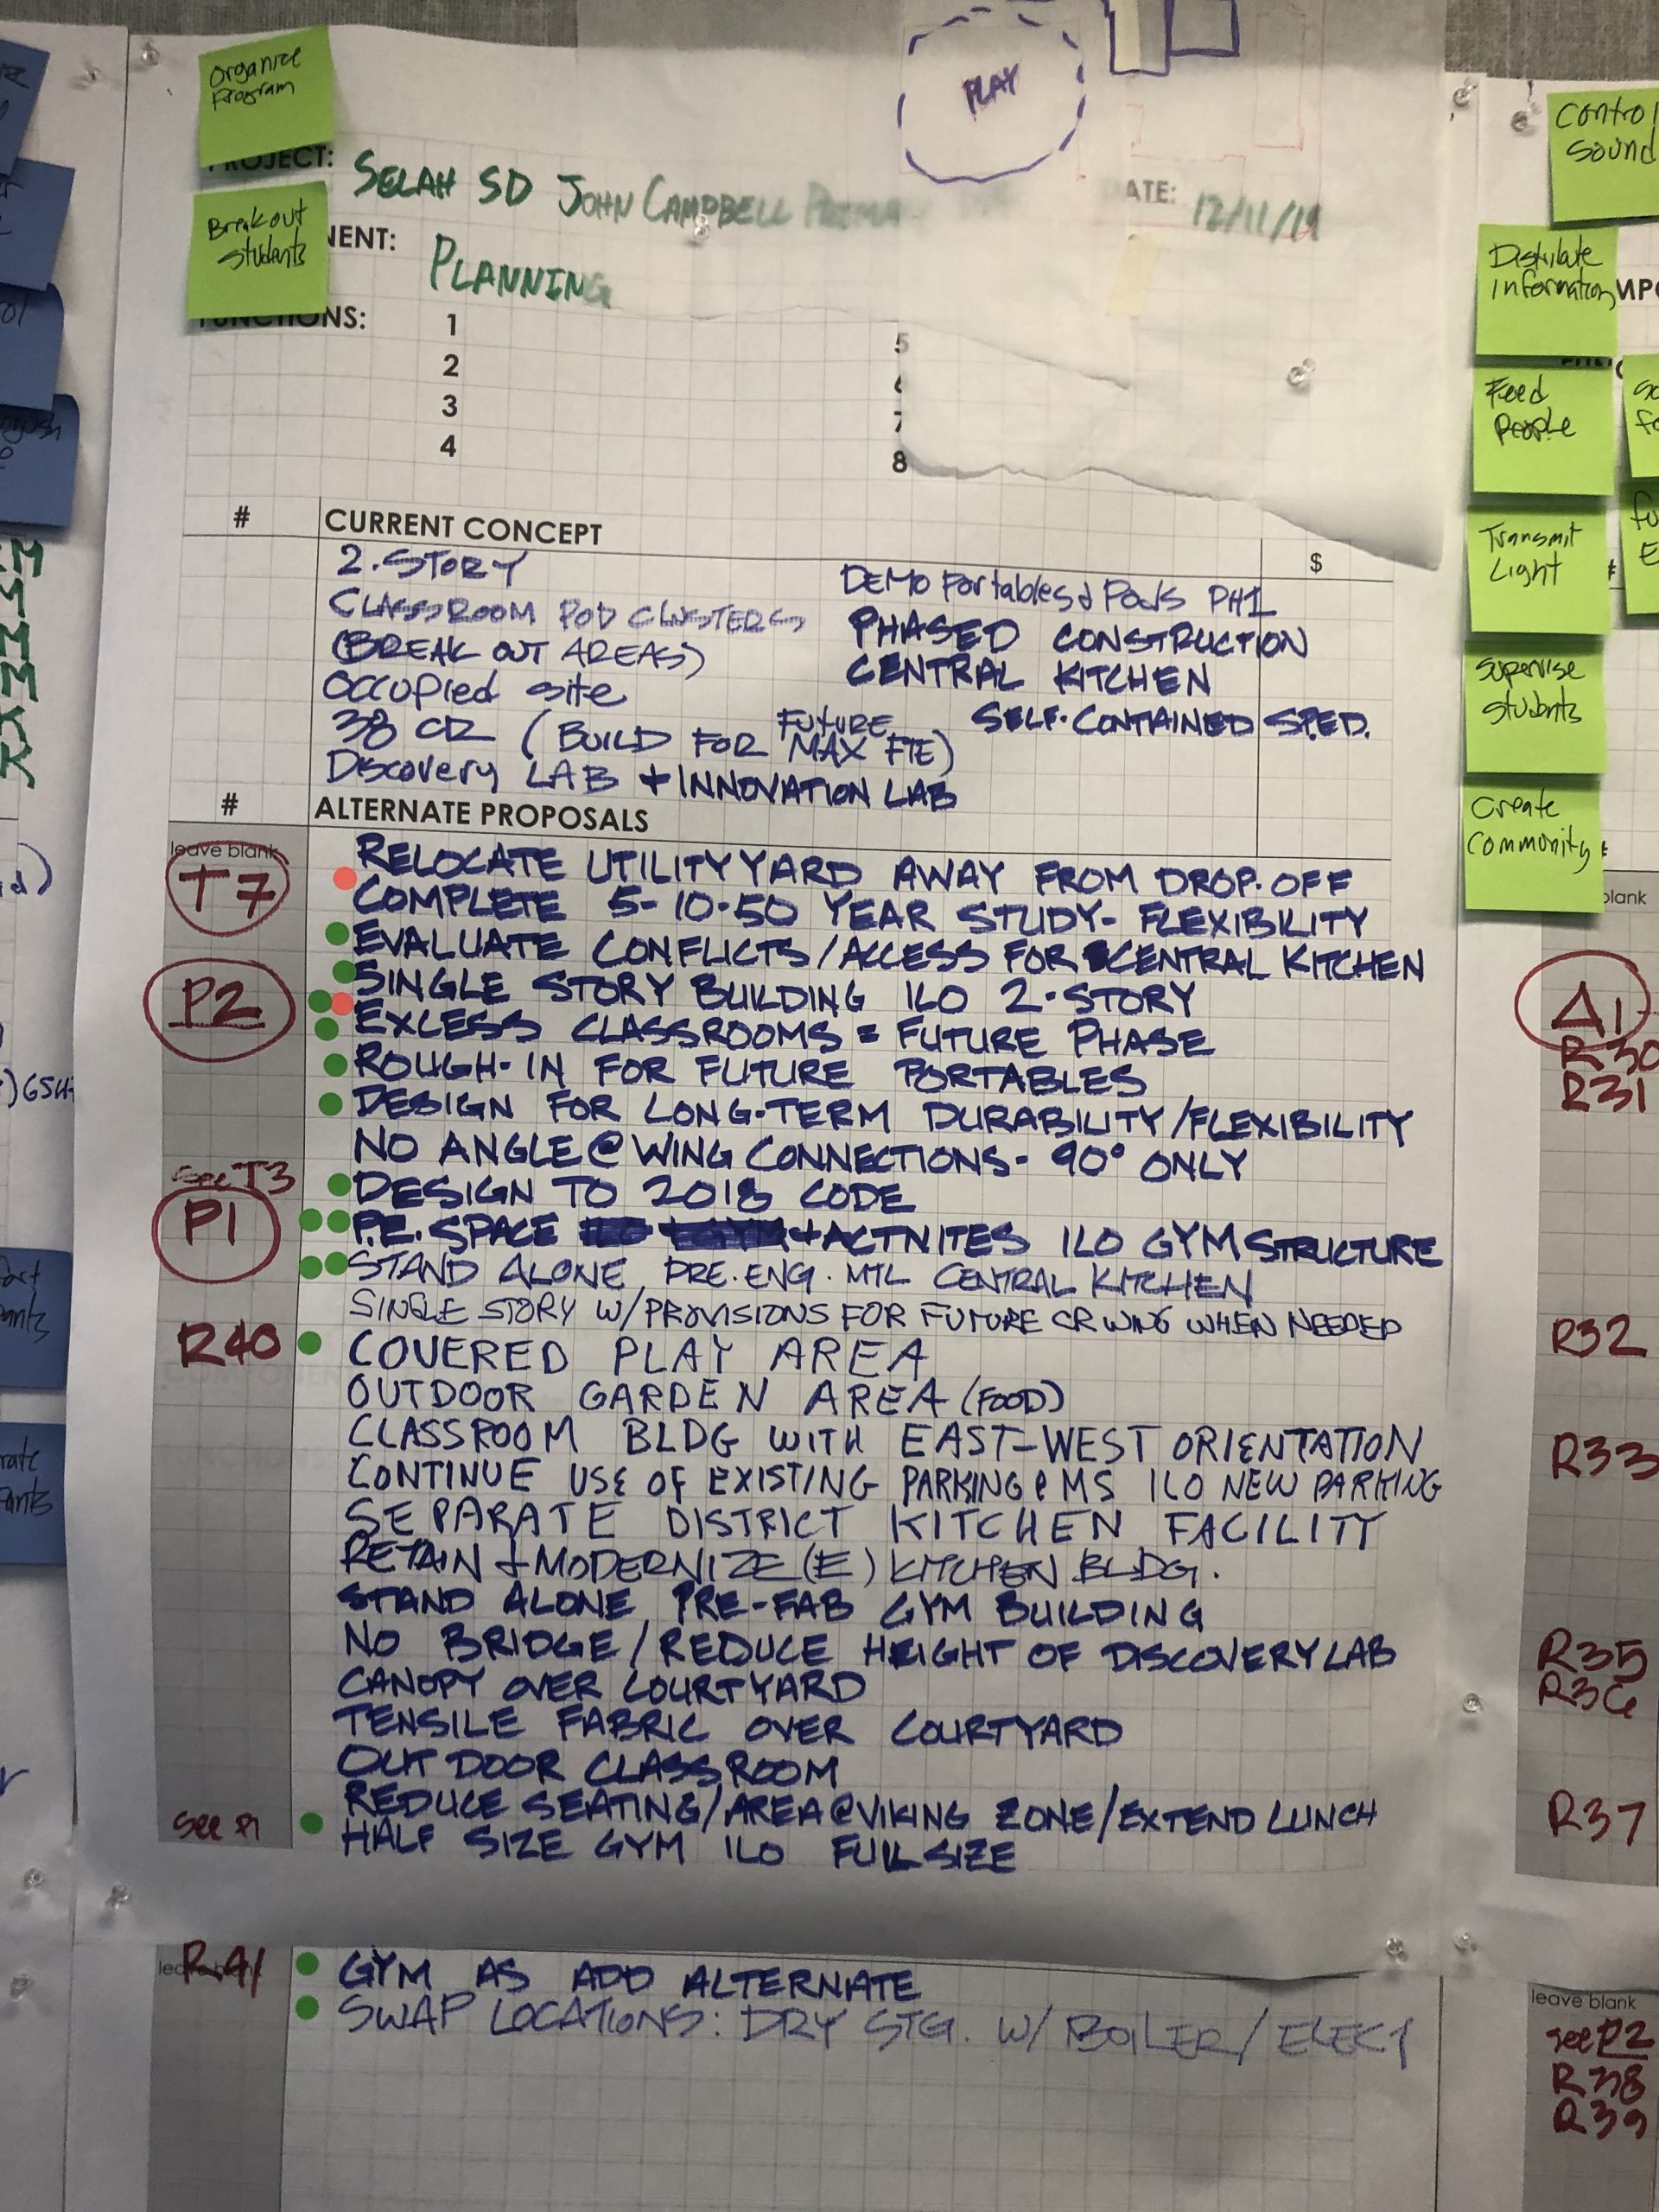 Organize
Program
PLAY
Control
Sound
PROJECT: SELAH SD JOHN CAMPBELL
DATE: 12/11/19
Breakout
Students
NENT: PLANNING
Distribute
Information
FUNCTIONS:
1 5
2 6
3 7
4 8
Feed
People
# CURRENT CONCEPT $
2.STORY
CLASSROOM POD CLUSTERS
(BREAK OUT AREAS)
Occupied site
38 CR (BUILD FOR FUTURE MAX FTE)
Discovery LAB + INNOVATION LAB
DEMO Portables & Pods PH1
PHASED CONSTRUCTION
CENTRAL KITCHEN
SELF-CONTAINED SPED.
Transmit
Light
Supervise
Students
Create
Community
# ALTERNATE PROPOSALS
leave blank
T7 RELOCATE UTILITY YARD AWAY FROM DROP-OFF
COMPLETE 5-10-50 YEAR STUDY- FLEXIBILITY
EVALUATE CONFLICTS/ACCESS FOR CENTRAL KITCHEN
P2 SINGLE STORY BUILDING ILO 2-STORY
EXCESS CLASSROOMS = FUTURE PHASE
ROUGH-IN FOR FUTURE PORTABLES
DESIGN FOR LONG-TERM DURABILITY/FLEXIBILITY
NO ANGLE@WING CONNECTIONS- 90° ONLY
see T3 DESIGN TO 2018 CODE
P1 P.E. SPACE + ACTIVITES ILO GYM STRUCTURE
STAND ALONE PRE.ENG. MTL CENTRAL KITCHEN
SINGLE STORY W/PROVISIONS FOR FUTURE CR WING WHEN NEEDED
R40 COVERED PLAY AREA
OUTDOOR GARDEN AREA (FOOD)
CLASSROOM BLDG WITH EAST-WEST ORIENTATION
CONTINUE USE OF EXISTING PARKING @ MS ILO NEW PARKING
SEPARATE DISTRICT KITCHEN FACILITY
RETAIN + MODERNIZE (E) KITCHEN BLDG.
STAND ALONE PRE-FAB GYM BUILDING
NO BRIDGE/REDUCE HEIGHT OF DISCOVERY LAB
CANOPY OVER COURTYARD
TENSILE FABRIC OVER COURTYARD
OUTDOOR CLASSROOM
REDUCE SEATING/AREA@VIKING ZONE/EXTEND LUNCH
see P1 HALF SIZE GYM ILO FULL SIZE
leave blank
R41 GYM AS ADD ALTERNATE
SWAP LOCATIONS: DRY STG. W/ BOILER/ELEC
blank
A1
R30
R31
R32
R33
R35
R36
R37
leave blank
see P2
R38
R39